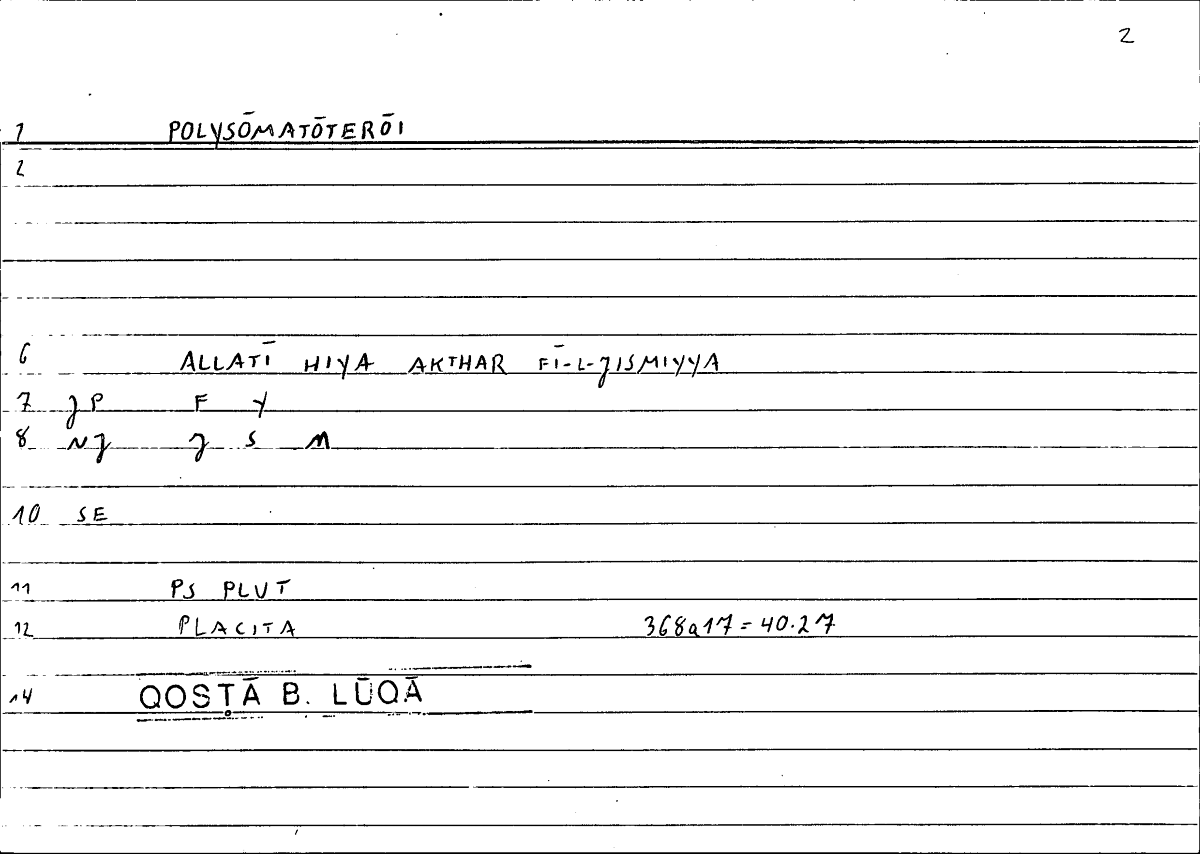 2
1 POLYSŌMATŌTERŌI
2
6 ALLATĪ HIYA AKTHAR FĪ-L-JISMIYYA
7 JP F Y
8 NJ J S M
10 SE
11 PS PLUT
12 PLACITA 368a17=40.27
14 QOSṬĀ B. LŪQĀ